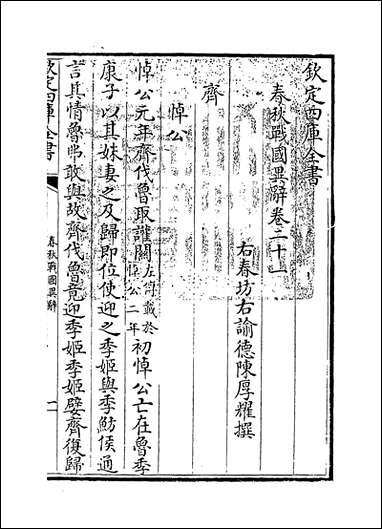 欽定四庫全書
春秋戰國異辭卷二十一
右春坊右諭德陳厚耀撰
齊
悼公
悼公元年齊伐魯取讙闡左傳載於悼公二年初悼公亡在魯季
康子以其妹妻之及歸即位使迎之季姬與季魴侯通
言其情魯弗敢與故齊伐魯竟迎季姬季姬嬖齊復歸
欽定四庫全書
春秋戰國異辭
一